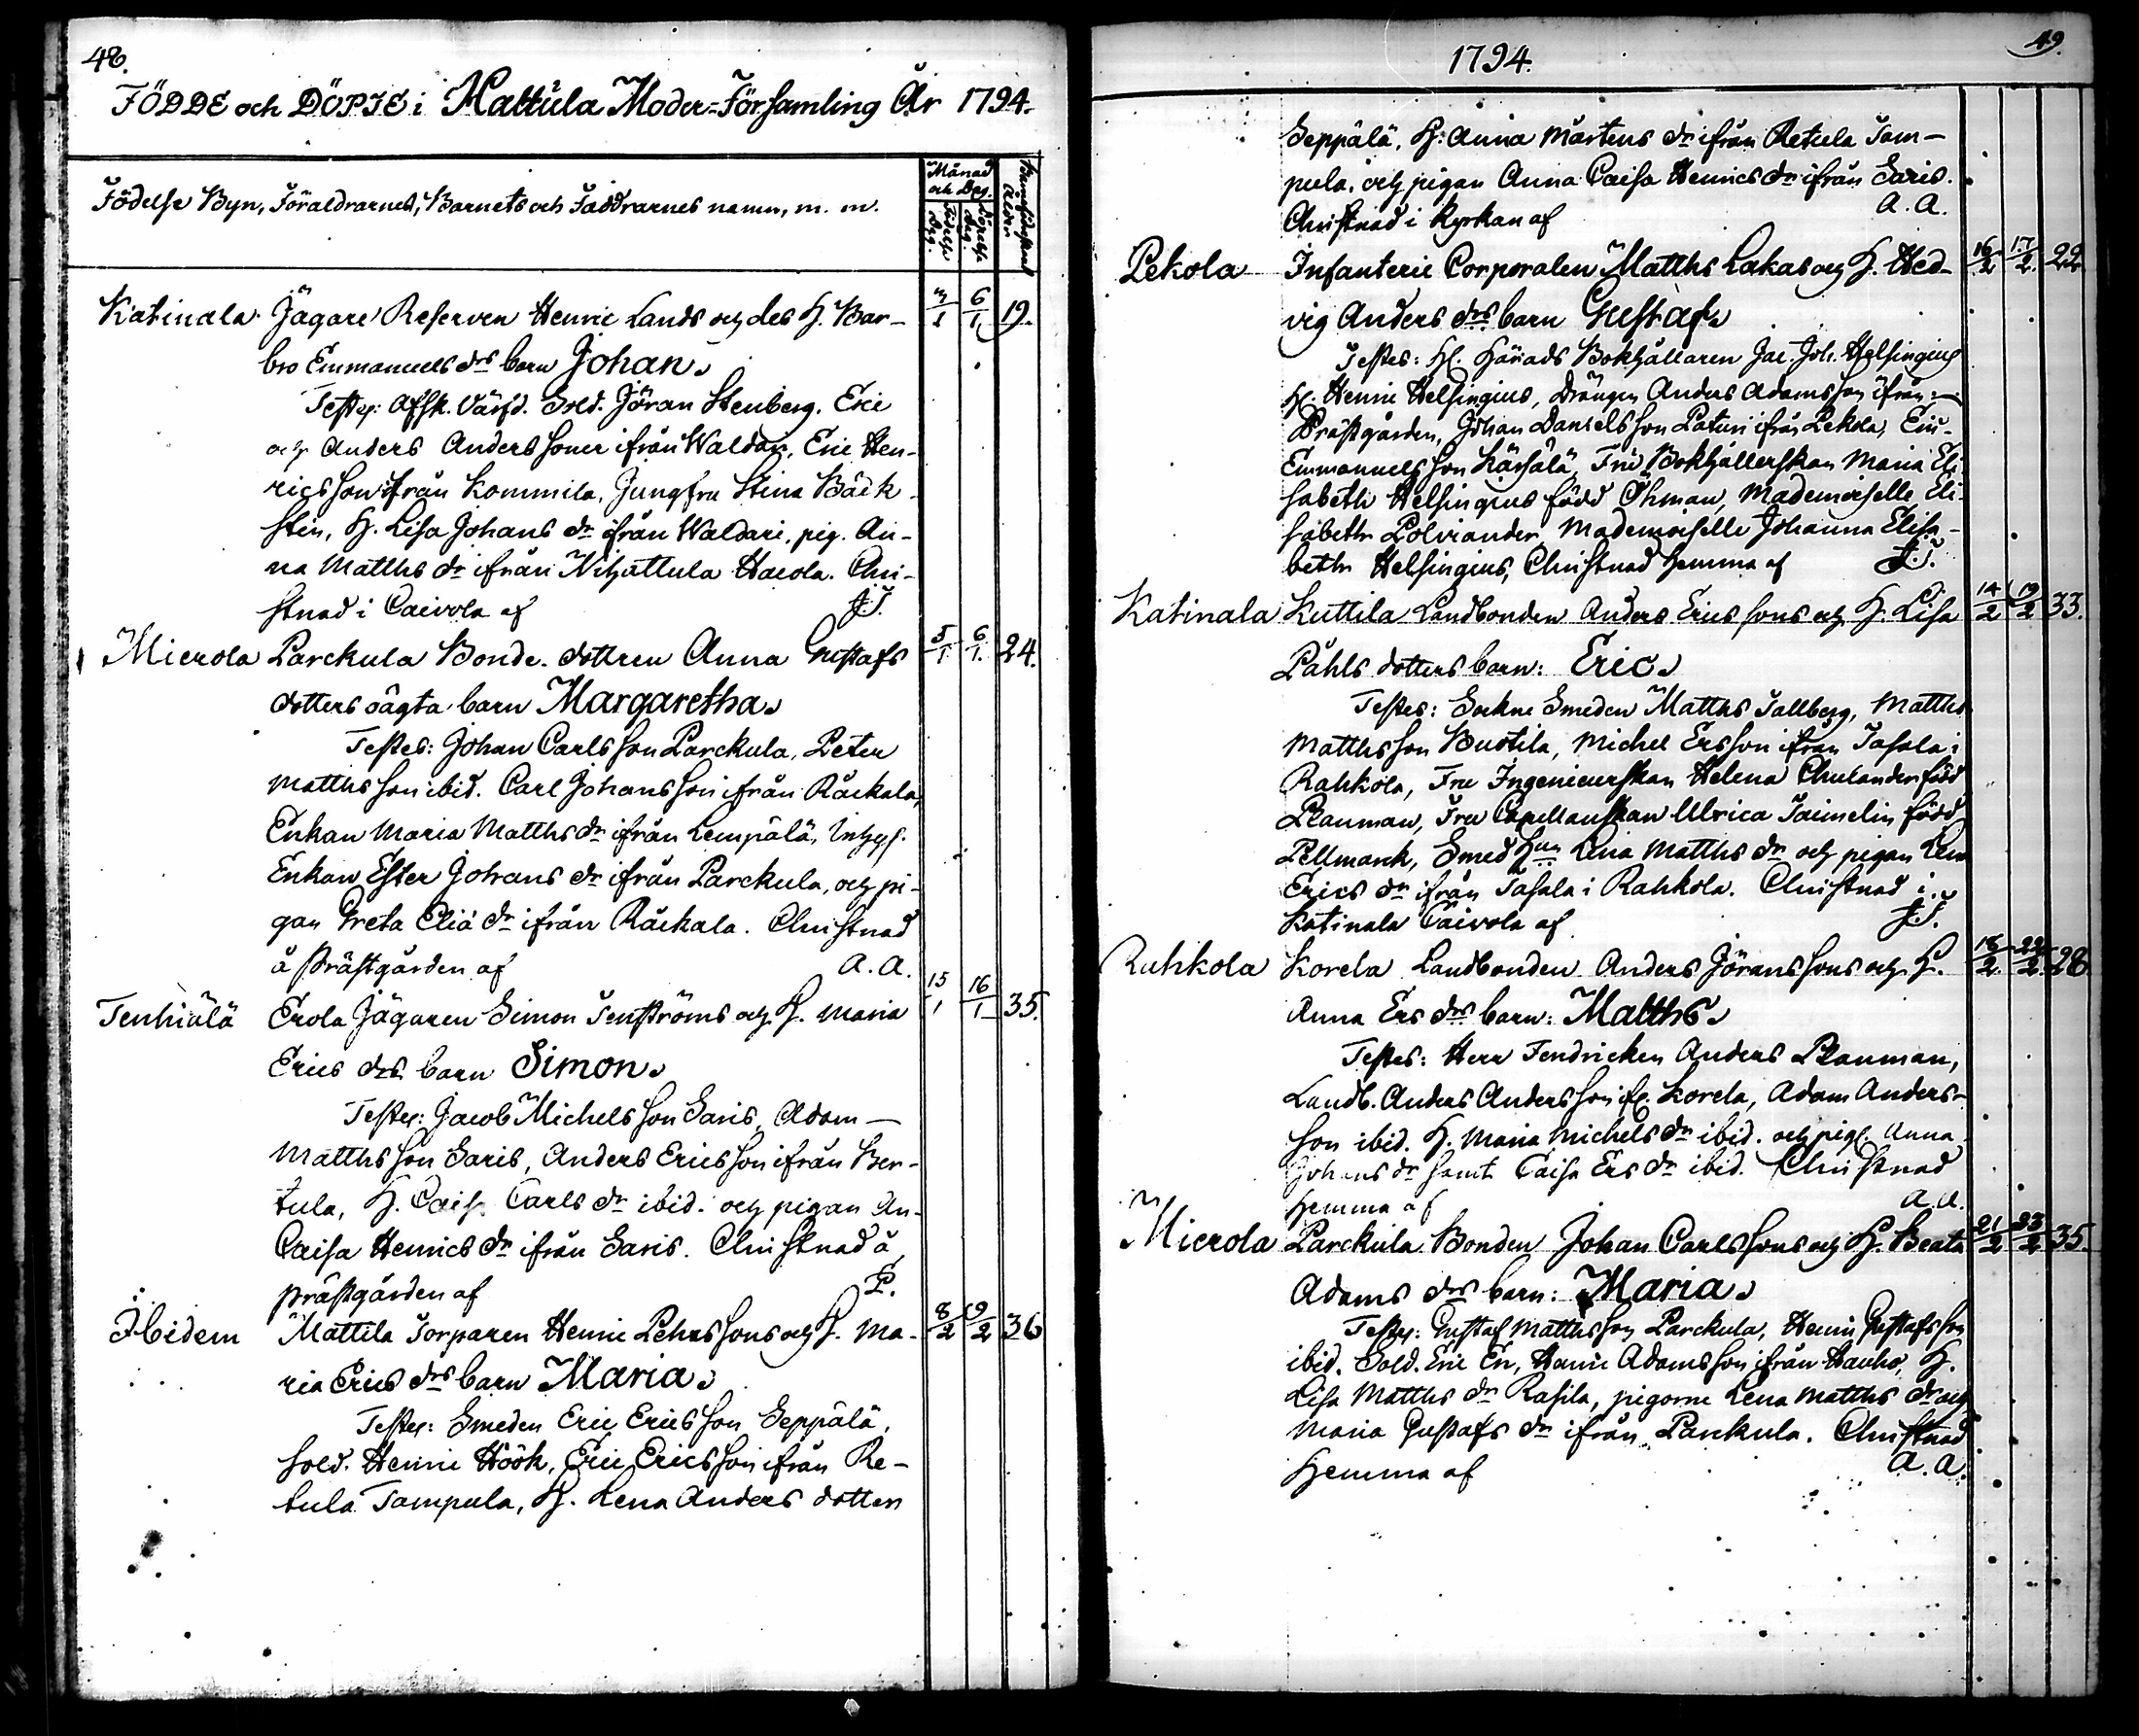 48.
FÖDDE och DÖPTE i Hattula Moder-Församling År 1794.
Födelse Byn, Föräldrarnes, Barnets och Faddrarnes namn, m. m.
Månad och Dag.
Födelse Dag.
Döpelse Dag.
Barnaföderskans Ålder
Katinala Jägare Reserven Henric Lands och des H. Bar- 3/1 6/1 19.
bro Emmanuels drs barn Johan.
Testes: Afsk. Värfd. Sold. Jöran Stenberg. Eric
och Anders Anders söner ifrån Waldari, Eric Hen-
rics son ifrån Kommila, Jungfru Stina Bäck-
stén, H. Lisa Johans dr ifrån Waldari, pig. An-
na Matths dr ifrån Nihattula Hacola. Chri-
stnad i Caivola af J.T.
Mierola Parckula Bonde-dottren Anna Gustafs 5/1 6/1 24.
dotters oägta barn Margaretha.
Testes: Johan Carls son Parckula, Peter
Matths son ibid. Carl Johans son ifrån Räckala,
Enkan Maria Matths dr ifrån Lempälä, Inhys.
Enkan Ester Johans dr ifrån Parckula, och pi-
gan Greta Eliæ dr ifrån Räckala. Christnad
å Prästgården af A. A.
Tenhiälä Erola Jägaren Simon Tenströms och H. Maria 15/1 16/1 35.
Erics drs barn Simon.
Testes: Jacob Michels son Saris, Adam
Matths son Saris, Anders Erics son ifrån Ber-
tula, H. Caisa Carls dr ibid. och pigan An-
Caisa Henrics dr ifrån Saris. Christnad å
prästgården af P.
Ibidem Mattila Torparen Henric Pehrs sons och H. Ma- 8/2 9/2 36
ria Erics drs barn Maria.
Testes: Smeden Eric Erics son Seppälä,
Sold. Henric Höök, Eric Erics son ifrån Re-
tula Tampula, H. Lena Anders dotter
1794.
49.
Seppälä, H. Anna Mårtens dr ifrån Retula Tam-
pula, och pigan Anna Caisa Henrics dr ifrån Saris.
Christnad i kyrkan af A. A.
Pekola Infanterie Corporalen Matths Lakas och H. Hed- 16/2 17/2 22
vig Anders drs barn Gustaf.
Testes: Hl. Härads Bokhållaren Jac. Joh. Helsingius
Hl. Henric Helsingius, Drängen Anders Adamsson ifrån
Prästgården, Johan Daniels son Paturi ifrån Pekola, Eric
Emmanuels son Kärsälä, Fru Bokhållerskan Maria Eli-
sabeth Helsingius född Öhman, Mademoiselle Eli-
sabeth Polviander, Mademoiselle Johanna Elisa-
beth Helsingius, Christnad hemma af J.T.
Katinala Kuttila Landbonden Anders Erics sons och H. Lisa 14/2 19/2 33.
Påhls dotters barn: Eric.
Testes: Sockne Smeden Matths Tallberg, Matths
Matths son Bustila, Michel Ersson ifrån Tasala i
Rahkola, Fru Ingenieurskan Helena Thulander född
Plauman, Fru Capellanskan Ulrica Taimelin född
Pellmarck, Smed Hun Lena Matths dr och pigan Lena
Erics dr ifrån Tasala i Rahkola. Christnad i
Katinala Caivola af J.T.
Ruhkola Korela Landbonden Anders Jörans sons och H. 18/2 22/2 28
Anna Ers drs barn: Matths.
Testes: Herr Fendricken Anders Plauman,
Landb. Anders Anders son ifr. Korela, Adam Anders-
son ibid. H. Maria Michels dr ibid. och pig. Anna
Johans dr samt Caisa Ers dr ibid. Christnad
hemma af A. A.
Mierola Parckula Bonden Johan Carls sons och H. Beata 21/2 23/2 35.
Adams drs barn: Maria.
Testes: Gustaf Matths son Parckula, Henric Gustafs son
ibid. Sold. Eric En, Henric Adams son ifrån Hauho, H.
Lisa Matths dr Rasila, pigorne Lena Matths dr och
Maria Gustafs dr ifrån Parckula. Christnad
hemma af A. A.